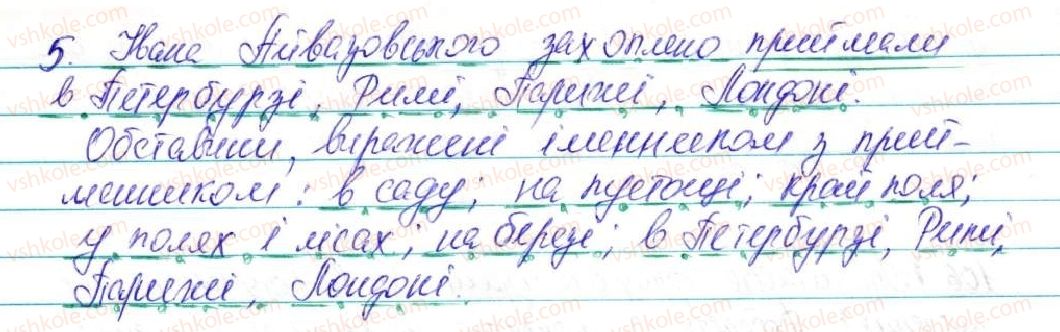 5. Івана Айвазовського захоплено приймали
в Петербурзі, Римі, Парижі, Лондоні.
Обставини, виражені іменником з прий-
менником: в саду; на пустощі; край поля;
у полях і лісах; на березі; в Петербурзі, Римі,
Парижі, Лондоні.